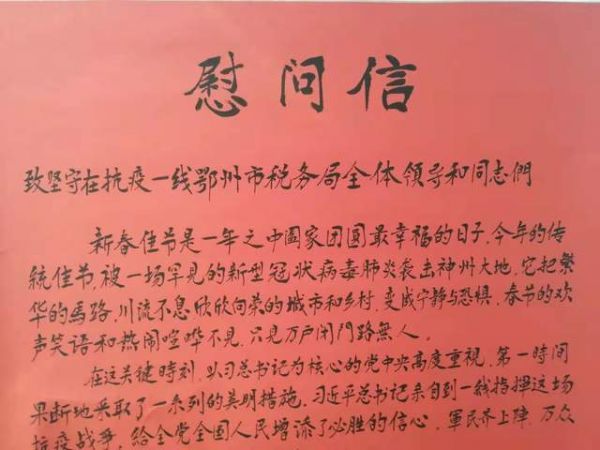 慰问信
致坚守在抗疫一线鄂州市税务局全体领导和同志們
新春佳节是一年之中阖家团圆最幸福的日子.今年的传
統佳节,被一场罕见的新型冠状病毒肺炎袭击神州大地,它把繁
华的馬路,川流不息欣欣向荣的城市和乡村,变成宁静与恐惧,春节的欢
声笑语和热闹喧哗不见,只見万户闭門路無人.
在这关键時刻,以习总书记为核心的党中央高度重視,第一時间
果断地采取了一系列的英明措施,习近平总书记亲自到一线指挥这场
抗疫战争,给全党全国人民增添了必胜的信心,軍民齐上陣,万众